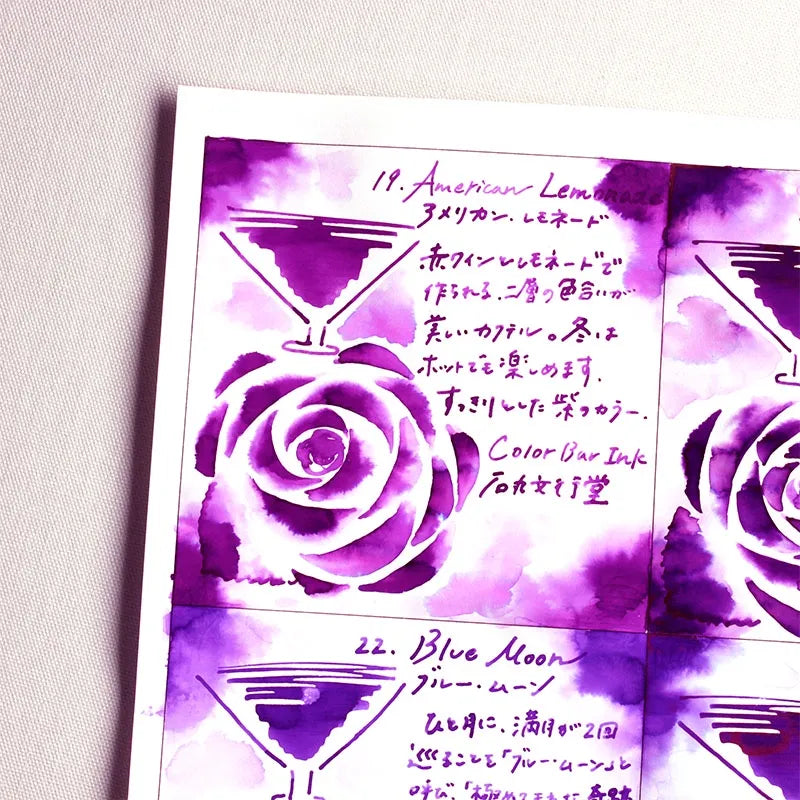 19. American Lemonade
アメリカン・レモネード
赤ワインとレモネードで
作られる、二層の色合いが
美しいカクテル。冬は
ホットでも楽しめます。
すっきりとした紫のカラー。
Color Bar Ink
石丸文行堂
22. Blue Moon
ブルー・ムーン
ひと月に、満月が2回
巡ることを「ブルー・ムーン」と
呼び、「極めてまれな